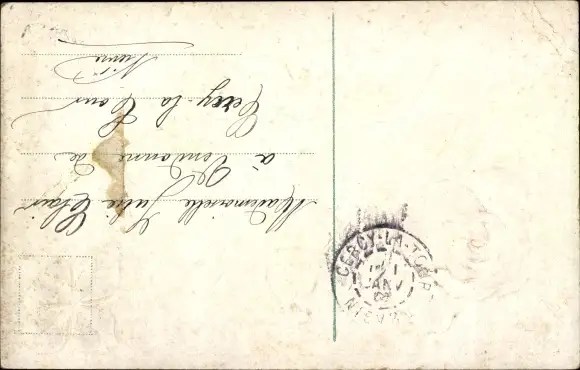 Mademoiselle Julie Clair
à Vendonne de
Cercy-la Tour
Nièvre
CERCY-LA-TOUR
JANV
NIÈVRE